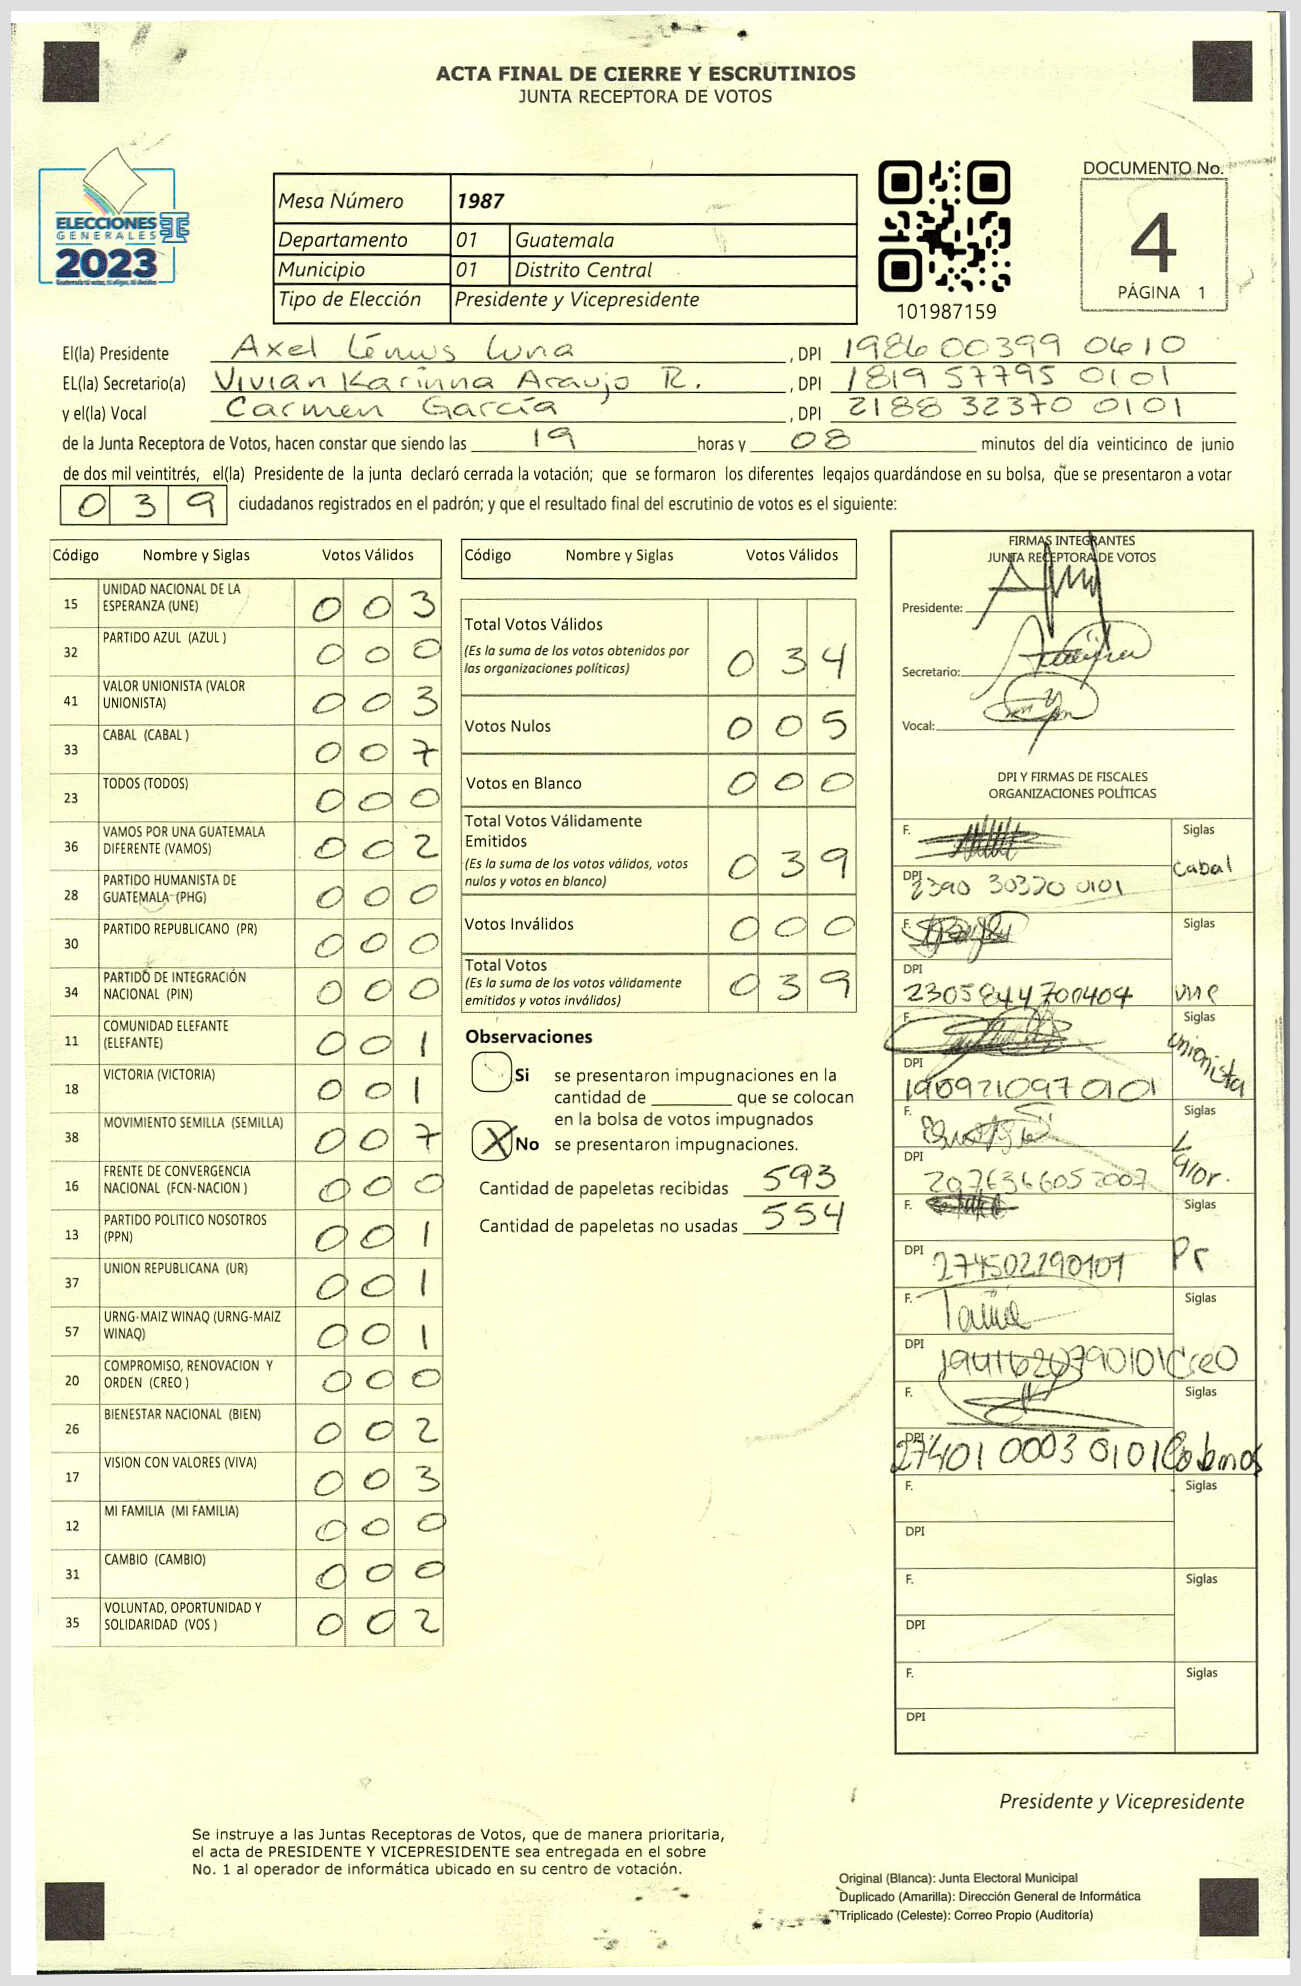 ACTA FINAL DE CIERRE Y ESCRUTINIOS
JUNTA RECEPTORA DE VOTOS
ELECCIONES
GENERALES
2023
Mesa Número 1987
Departamento 01 Guatemala
Municipio 01 Distrito Central
Tipo de Elección Presidente y Vicepresidente
101987159
DOCUMENTO No.
4
PÁGINA 1
El(la) Presidente Axel Lémus Luna , DPI 1986 00399 0610
EL(la) Secretario(a) Vivian Karinna Araujo R. , DPI 1819 57795 0101
y el(la) Vocal Carmen García , DPI 2188 32370 0101
de la Junta Receptora de Votos, hacen constar que siendo las 19 horas y 08 minutos del día veinticinco de junio
de dos mil veintitrés, el(la) Presidente de la junta declaró cerrada la votación; que se formaron los diferentes legajos guardándose en su bolsa, que se presentaron a votar
039 ciudadanos registrados en el padrón; y que el resultado final del escrutinio de votos es el siguiente:
Código Nombre y Siglas Votos Válidos
15 UNIDAD NACIONAL DE LA
ESPERANZA (UNE) 003
32 PARTIDO AZUL (AZUL ) 000
41 VALOR UNIONISTA (VALOR
UNIONISTA) 003
33 CABAL (CABAL ) 007
23 TODOS (TODOS) 000
36 VAMOS POR UNA GUATEMALA
DIFERENTE (VAMOS) 002
28 PARTIDO HUMANISTA DE
GUATEMALA (PHG) 000
30 PARTIDO REPUBLICANO (PR) 000
34 PARTIDO DE INTEGRACIÓN
NACIONAL (PIN) 000
11 COMUNIDAD ELEFANTE
(ELEFANTE) 001
18 VICTORIA (VICTORIA) 001
38 MOVIMIENTO SEMILLA (SEMILLA) 007
16 FRENTE DE CONVERGENCIA
NACIONAL (FCN-NACION ) 000
13 PARTIDO POLITICO NOSOTROS
(PPN) 001
37 UNION REPUBLICANA (UR) 001
57 URNG-MAIZ WINAQ (URNG-MAIZ
WINAQ) 001
20 COMPROMISO, RENOVACION Y
ORDEN (CREO ) 000
26 BIENESTAR NACIONAL (BIEN) 002
17 VISION CON VALORES (VIVA) 003
12 MI FAMILIA (MI FAMILIA) 000
31 CAMBIO (CAMBIO) 000
35 VOLUNTAD, OPORTUNIDAD Y
SOLIDARIDAD (VOS ) 002
Código Nombre y Siglas Votos Válidos
Total Votos Válidos
(Es la suma de los votos obtenidos por
las organizaciones políticas) 034
Votos Nulos 005
Votos en Blanco 000
Total Votos Válidamente
Emitidos
(Es la suma de los votos válidos, votos
nulos y votos en blanco) 039
Votos Inválidos 000
Total Votos
(Es la suma de los votos válidamente
emitidos y votos inválidos) 039
Observaciones
Si se presentaron impugnaciones en la
cantidad de ________ que se colocan
en la bolsa de votos impugnados
X No se presentaron impugnaciones.
Cantidad de papeletas recibidas 593
Cantidad de papeletas no usadas 554
FIRMAS INTEGRANTES
JUNTA RECEPTORA DE VOTOS
Presidente:
Secretario:
Vocal:
DPI Y FIRMAS DE FISCALES
ORGANIZACIONES POLÍTICAS
F. Siglas
DPI 2390 30320 0101 Cabal
F. Siglas
DPI
2305844700404 une
F. Siglas
DPI Unionista
190921097 0101
F. Siglas
DPI Valor.
2076366052007
F. Siglas
DPI 274502290101 Pr
F. Siglas
DPI 1941620790101 Creo
F. Siglas
DPI
27401 0003 0101
F. Siglas
DPI
F. Siglas
DPI
F. Siglas
DPI
Presidente y Vicepresidente
Se instruye a las Juntas Receptoras de Votos, que de manera prioritaria,
el acta de PRESIDENTE Y VICEPRESIDENTE sea entregada en el sobre
No. 1 al operador de informática ubicado en su centro de votación.
Original (Blanca): Junta Electoral Municipal
Duplicado (Amarilla): Dirección General de Informática
Triplicado (Celeste): Correo Propio (Auditoría)